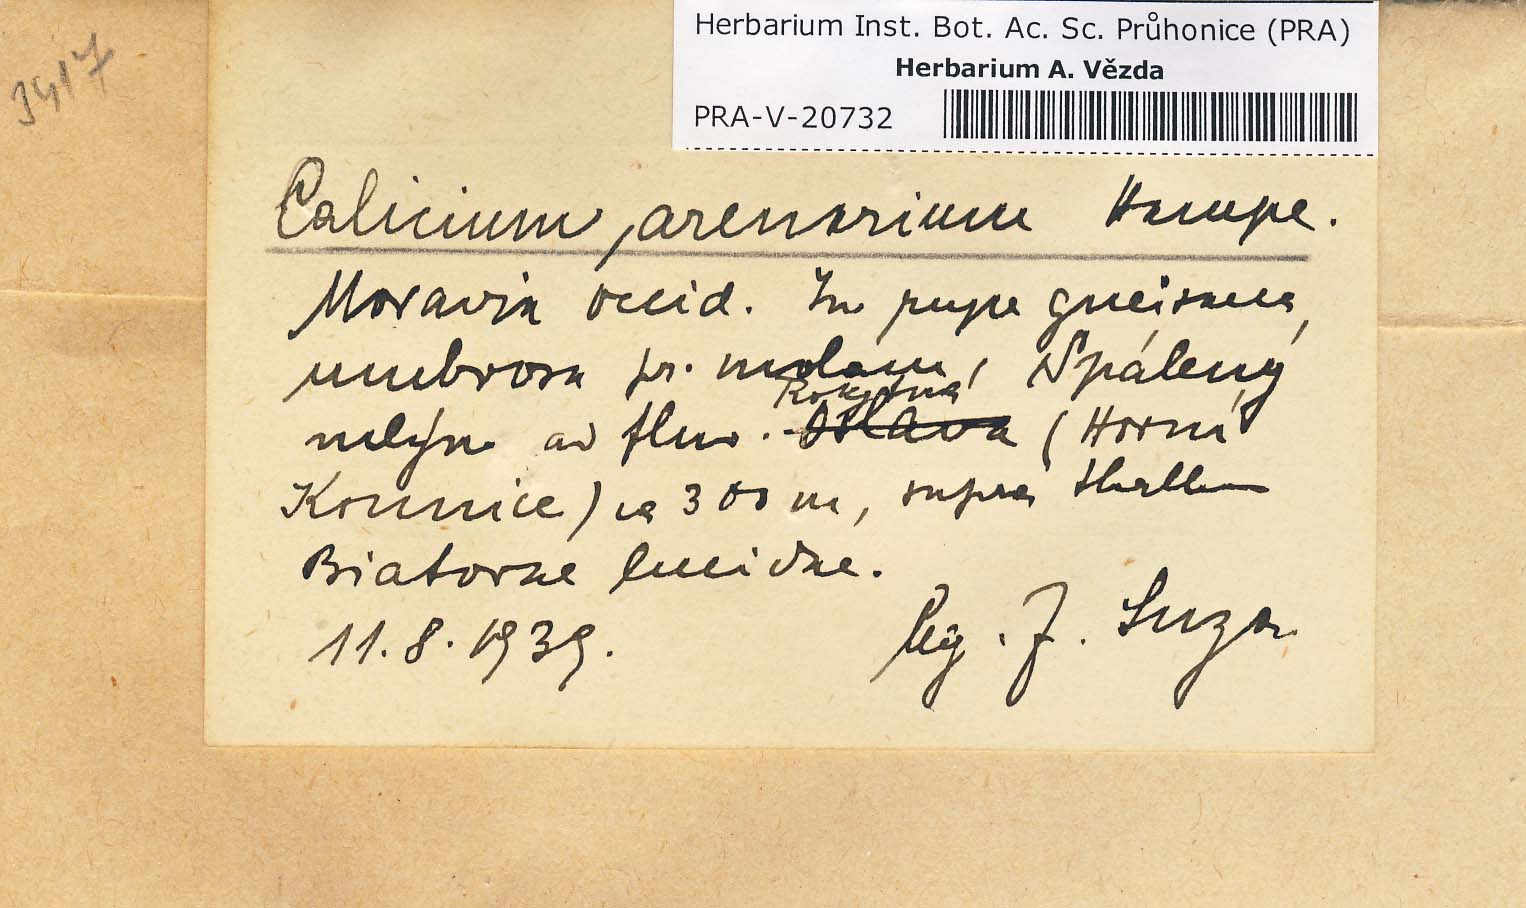 3417
Herbarium Inst. Bot. Ac. Sc. Průhonice (PRA)
Herbarium A. Vězda
PRA-V-20732
Calicium arenarium Hampe.
Moravia occid. In rupe gneisacea,
umbrosa pr. molam, Spálený
mlýn ad fluv. Rokytná Oslava (Horní
Kounice) ca 300 m, supra thallum
Biatorae lucidae.
11.8.1939.
leg. J. Suza